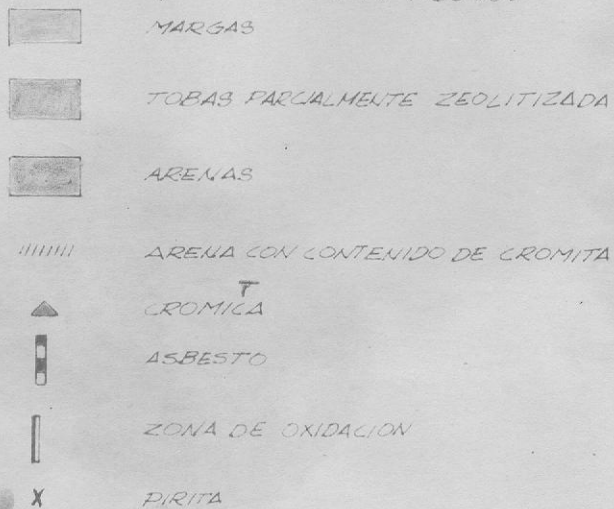 MARGAS
TOBAS PARCIALMENTE ZEOLITIZADA
ARENAS
ARENA CON CONTENIDO DE CROMITA
T
CROMICA
ASBESTO
ZONA DE OXIDACION
X PIRITA